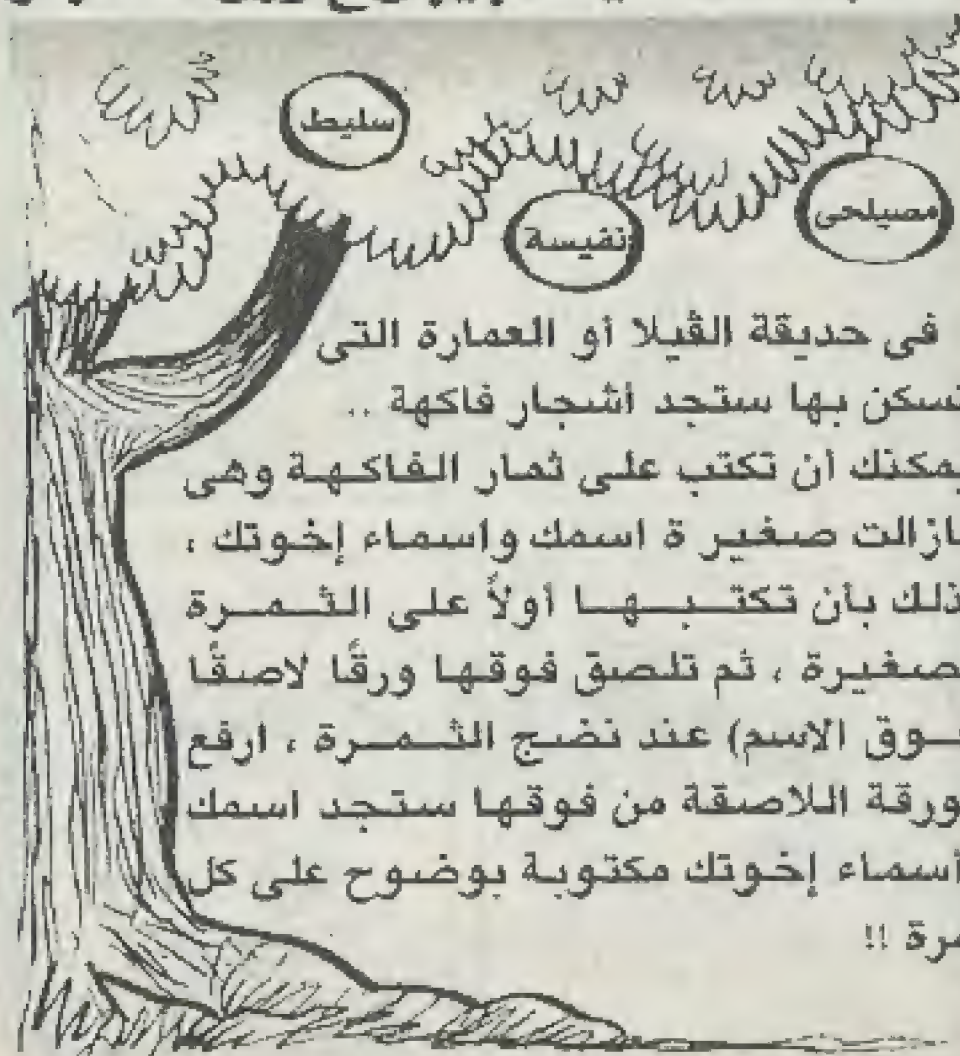 سليط
نفيسة
مصيلحى
فى حديقة الڤيلا أو العمارة التى
تسكن بها ستجد أشجار فاكهة ..
يمكنك أن تكتب على ثمار الفاكهة وهى
مازالت صغير ة اسمك واسماء إخوتك ،
ذلك بأن تكتبها أولاً على الثمرة
صغيرة ، ثم تلصق فوقها ورقًا لاصقًا
فوق الاسم) عند نضج الثمرة ، ارفع
ورقة اللاصقة من فوقها ستجد اسمك
أسماء إخوتك مكتوبة بوضوح على كل
مرة !!